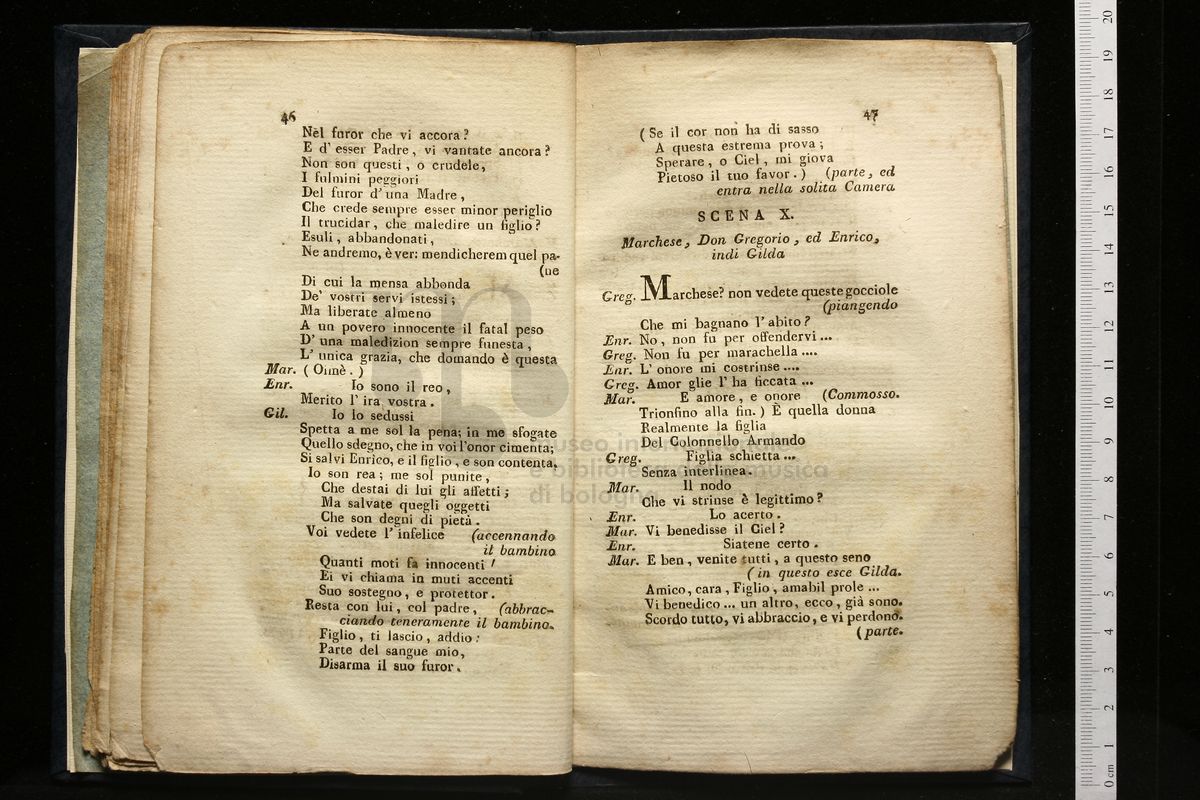 46
Nel furor che vi accora?
E d' esser Padre, vi vantate ancora?
Non son questi, o crudele,
I fulmini peggiori
Del furor d'una Madre,
Che crede sempre esser minor periglio
Il trucidar, che maledire un figlio?
Esuli, abbandonati,
Ne andremo, è ver: mendicherem quel pa-
(ne
Di cui la mensa abbonda
De' vostri servi istessi;
Ma liberate almeno
A un povero innocente il fatal peso
D' una maledizion sempre funesta,
L' unica grazia, che domando è questa
Mar. (Oimè.)
Enr. Io sono il reo,
Merito l' ira vostra.
Gil. Io lo sedussi
Spetta a me sol la pena; in me sfogate
Quello sdegno, che in voi l'onor cimenta;
Si salvi Enrico, e il figlio, e son contenta.
Io son rea; me sol punite,
Che destai di lui gli affetti;
Ma salvate quegli oggetti
Che son degni di pietà.
Voi vedete l' infelice (accennando
il bambino
Quanti moti fa innocenti!
Ei vi chiama in muti accenti
Suo sostegno, e protettor.
Resta con lui, col padre, (abbrac-
ciando teneramente il bambino.
Figlio, ti lascio, addio:
Parte del sangue mio,
Disarma il suo furor.
47
(Se il cor non ha di sasso
A questa estrema prova;
Sperare, o Ciel, mi giova
Pietoso il tuo favor.) (parte, ed
entra nella solita Camera
SCENA X.
Marchese, Don Gregorio, ed Enrico,
indi Gilda
Greg. Marchese? non vedete queste gocciole
(piangendo
Che mi bagnano l' abito?
Enr. No, non fu per offendervi...
Greg. Non fu per marachella....
Enr. L' onore mi costrinse....
Greg. Amor glie l' ha ficcata...
Mar. E amore, e onore (Commosso.
Trionfino alla fin.) È quella donna
Realmente la figlia
Del Colonnello Armando
Greg. Figlia schietta...
Senza interlinea.
Mar. Il nodo
Che vi strinse è legittimo?
Enr. Lo acerto.
Mar. Vi benedisse il Ciel?
Enr. Siatene certo.
Mar. E ben, venite tutti, a questo seno
(in questo esce Gilda.
Amico, cara, Figlio, amabil prole...
Vi benedico... un altro, ecco, già sono.
Scordo tutto, vi abbraccio, e vi perdono.
(parte.